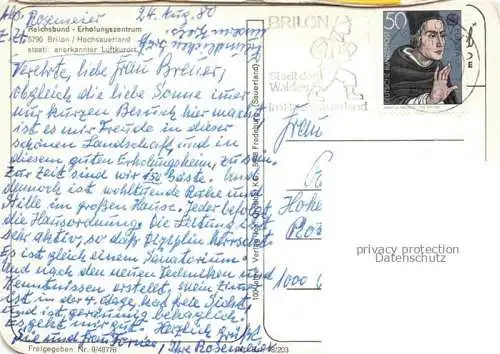 Rosemeier 24. Aug. 80
Reichsbund - Erholungszentrum
5790 Brilon / Hochsauerland
staatl. anerkannter Luftkurort
Verehrte, liebe Frau Breuer,
obgleich die liebe Sonne immer
nur kurzen Besuch hier macht
ist es mir Freude in dieser
schönen Landschaft und in
diesem guten Erholungsheim, zu sein.
Zur Zeit sind wir 152 Gäste. Und
dennoch ist wohltuende Ruhe und
Stille im großen Hause. Jeder befolgt
die Hausordnung. Die Leitung ist
sehr aktiv, so daß Disziplin herrscht.
Es ist gleich einem Sanatorium
und nach den neuen Techniken und
Kenntnissen erstellt. Mein Zimmer
ist in der 4. Etage, hat freie Sicht,
und ist geräumig behaglich.
Es geht mir gut. Herzlich grüßt
Sie und Frau Ihre Rosemeier
Freigegeben Nr. 9/48776
BRILON
Stadt des
Waldes
im Hochsauerland
50
Frau
Hohe
1000
privacy protection
Datenschutz